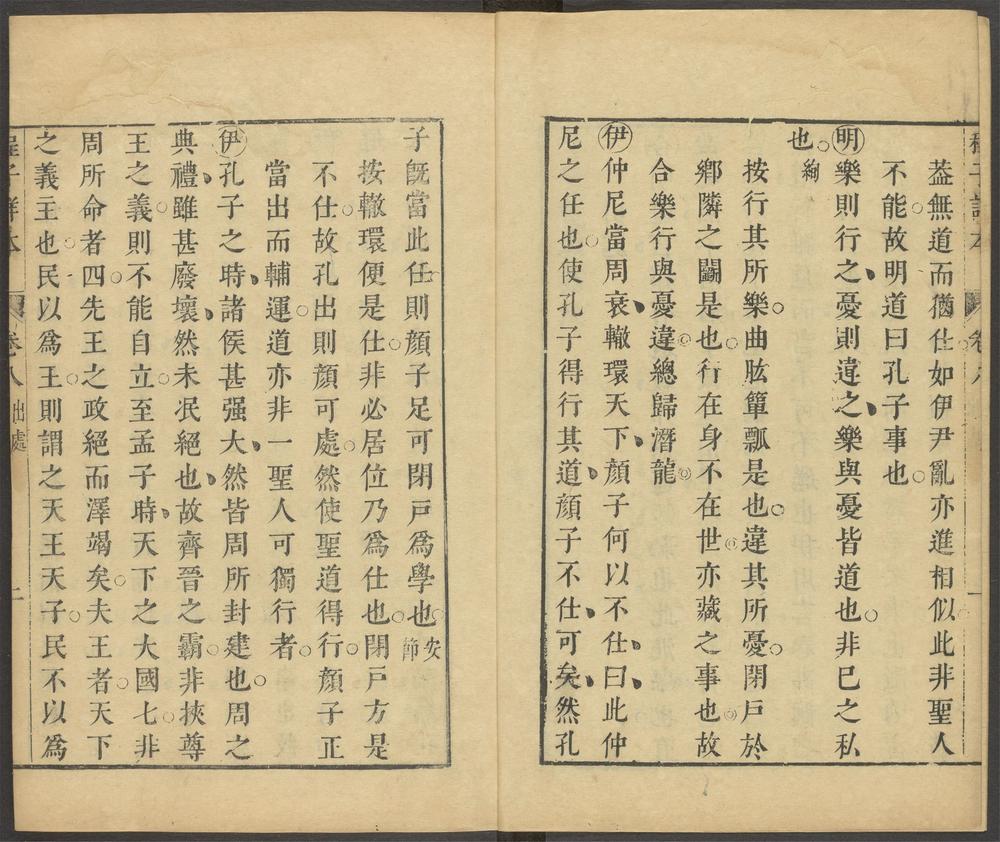 葢無道而猶仕如伊尹亂亦進相似此非聖人
不能故明道曰孔子事也
明樂則行之憂則違之樂與憂皆道也非已之私
也絢
按行其所樂曲肱簞瓢是也違其所憂閉戸於
鄉隣之鬭是也行在身不在世亦藏之事也故
合樂行與憂違總歸潛龍
伊仲尼當周衰轍環天下顏子何以不仕曰此仲
尼之任也使孔子得行其道顏子不仕可矣然孔
子旣當此任則顏子足可閉戸爲學也安節
按轍環便是仕非必居位乃爲仕也閉戸方是
不仕故孔出則顏可處然使聖道得行顏子正
當出而輔運道亦非一聖人可獨行者
伊孔子之時諸侯甚强大然皆周所封建也周之
典禮雖甚廢壞然未泯絕也故齊晉之霸非挾尊
王之義則不能自立至孟子時天下之大國七非
周所命者四先王之政絕而澤竭矣夫王者天下
之義主也民以爲王則謂之天王天子民不以爲
卷八 出處